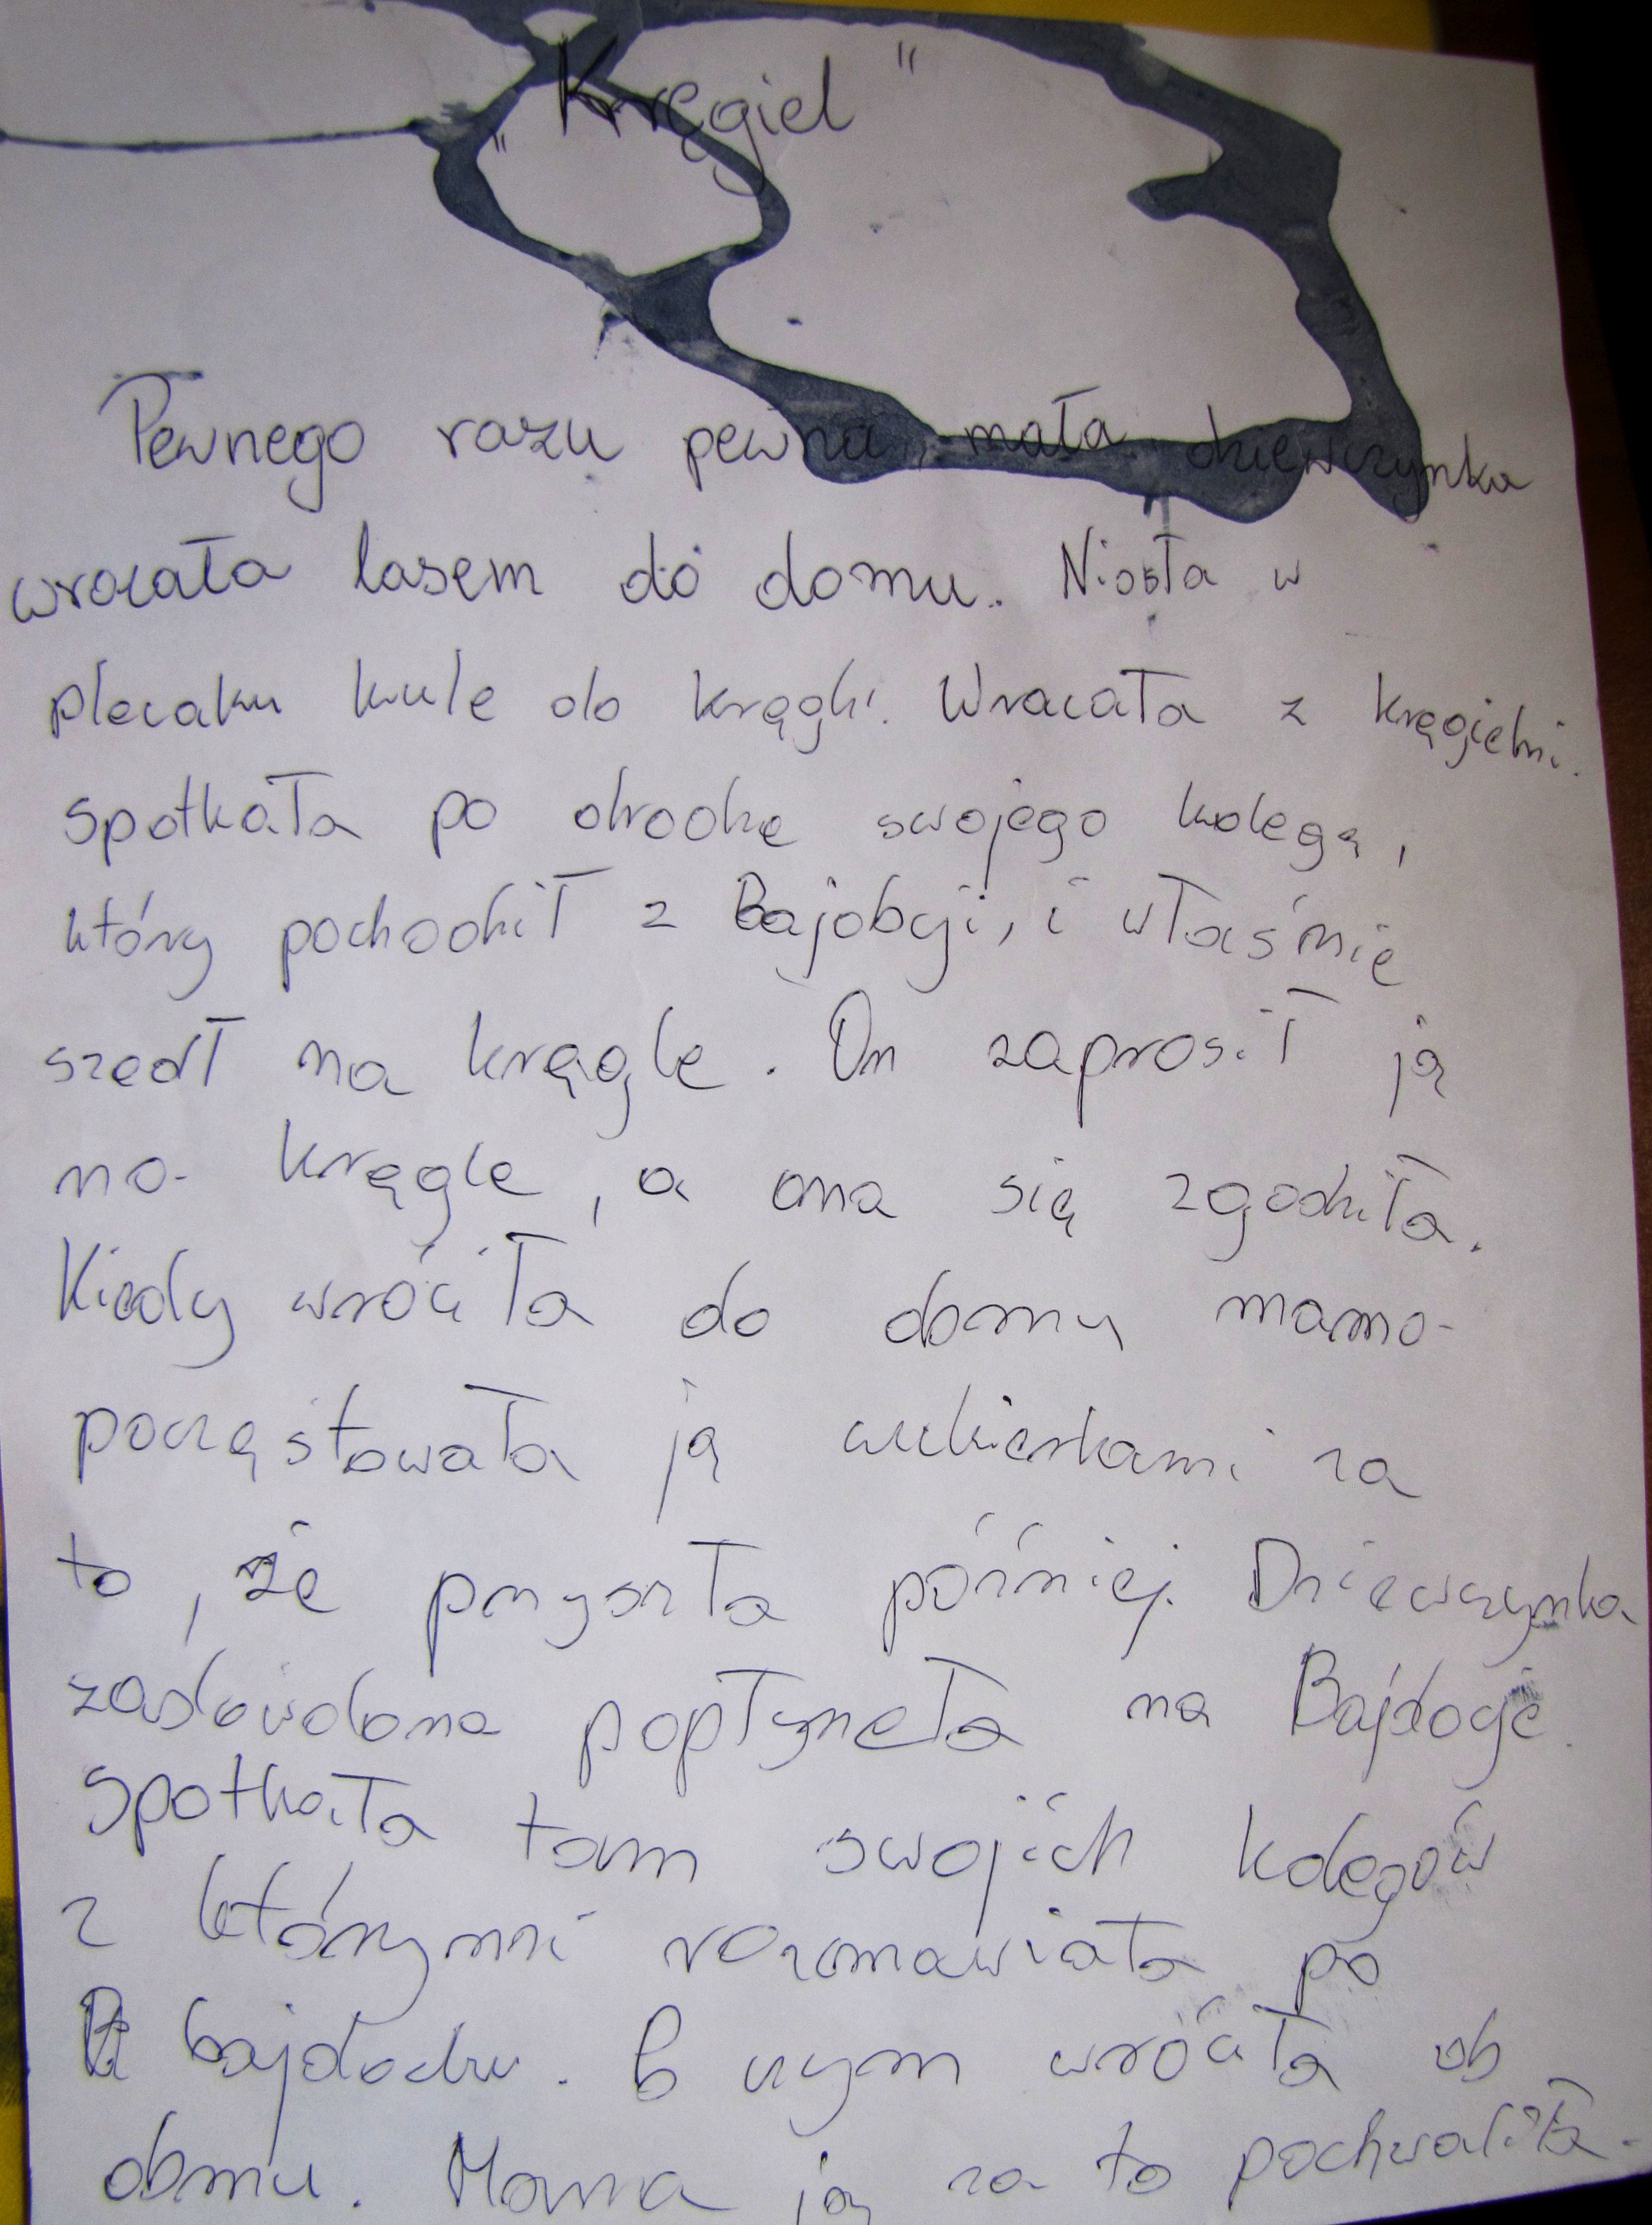 „Kręgiel"
Pewnego razu pewna, mała dziewczynka
wracała lasem do domu. Niosła w
plecaku kule do kręgli. Wracała z kręgielni.
spotkała po drodze swojego kolegę,
który pochodził z i właśnie
szedł na kręgle. On zaprosił ją
na kręgle, a ona się zgodziła.
Kiedy wróciła do domu mama
poczęstowała ją cukierkami za
to, że przyszła później. Dziewczynka
zadowolona popłyneła na
spotkała tam swojich kolegów
z którymi rozmawiała po
bajdocku. Po czym wróciła do
domu. Mama ją za to pochwaliła.